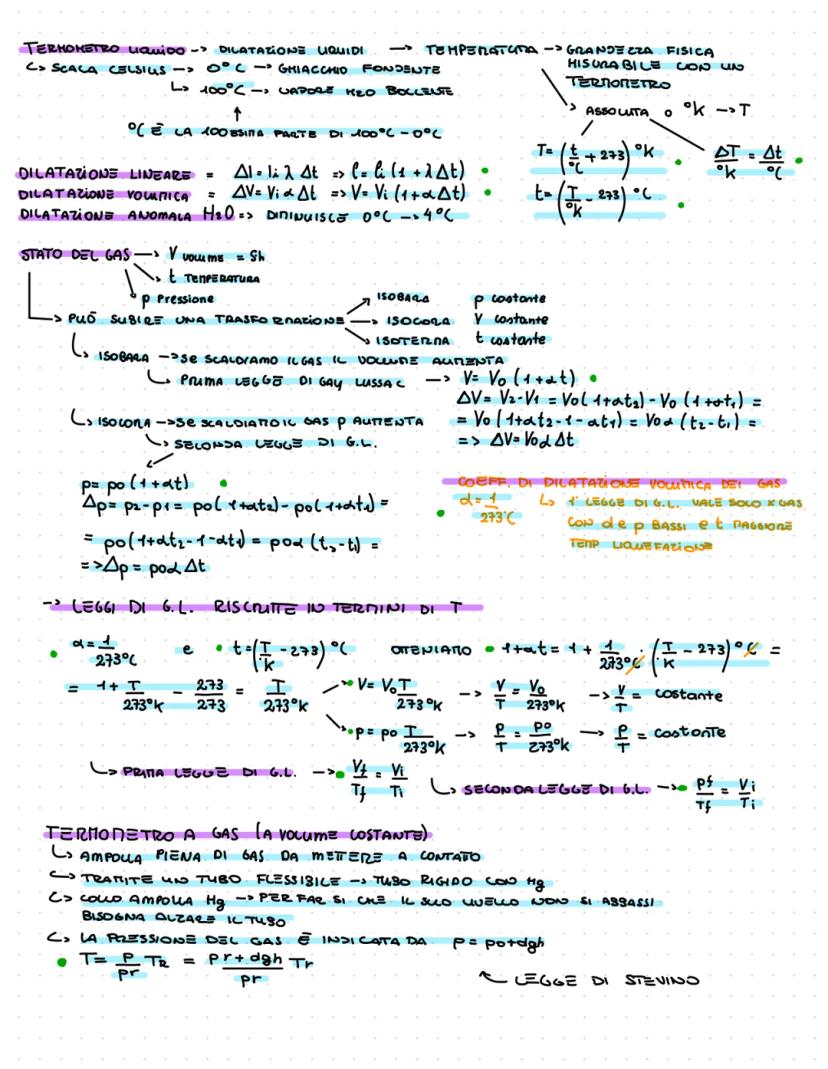 TERMOMETRO LIQUIDO -> DILATAZIONE LIQUIDI -> TEMPERATURA -> GRANDEZZA FISICA
MISURABILE CON UN
TERMOMETRO
↳ SCALA CELSIUS -> 0°C -> GHIACCHIO FONDENTE
↳ 100°C -> VAPORE H2O BOLLENTE
↑
°C È LA 100ESIMA PARTE DI 100°C - 0°C
> ASSOLUTA o °K -> T
T = (t/°C + 273) °K
ΔT/°K = Δt/°C
t = (T/°K - 273) °C
DILATAZIONE LINEARE = Δl = li λ Δt => l = li (1 + λΔt)
DILATAZIONE VOLUMICA = ΔV = Vi α Δt => V = Vi (1 + αΔt)
DILATAZIONE ANOMALA H2O => DIMINUISCE 0°C -> 4°C
STATO DEL GAS -> V VOLUME = Sh
t TEMPERATURA
p Pressione
-> PUÒ SUBIRE UNA TRASFORMAZIONE
-> ISOBARA p costante
-> ISOCORA V costante
-> ISOTERMA t costante
↳ ISOBARA -> Se SCALDIAMO IL GAS IL VOLUME AUMENTA
↳ PRIMA LEGGE DI GAY LUSSAC -> V = V0 (1+αt)
ΔV = V2-V1 = V0(1+αt2) - V0 (1+αt1) =
= V0 (1+αt2-1-αt1) = V0α (t2-t1) =
=> ΔV = V0αΔt
↳ ISOCORA -> Se SCALDIAMO IL GAS p AUMENTA
↳ SECONDA LEGGE DI G.L.
p = p0 (1+αt)
Δp = p2-p1 = p0(1+αt2) - p0(1+αt1) =
= p0(1+αt2-1-αt1) = p0α (t2-t1) =
=> Δp = p0αΔt
COEFF. DI DILATAZIONE VOLUMICA DEI GAS
α = 1/273°C ↳ 1ª LEGGE DI G.L. VALE SOLO X GAS
CON d e p BASSI e t MAGGIORE
TEMP LIQUEFAZIONE
-> LEGGI DI G.L. RISCRITTE IN TERMINI DI T
α = 1/273°C e t = (T/°K - 273) °C OTTENIAMO 1+αt = 1 + 1/273°C · (T/K - 273) °C =
= 1 + T/273°K - 273/273 = T/273°K
V = V0 T/273°K -> V/T = V0/273°K -> V/T = costante
p = p0 T/273°K -> P/T = p0/273°K -> P/T = costante
↳ PRIMA LEGGE DI G.L. -> Vf/Tf = Vi/Ti
↳ SECONDA LEGGE DI G.L. -> pf/Tf = Vi/Ti
TERMOMETRO A GAS (A VOLUME COSTANTE)
↳ AMPOLLA PIENA DI GAS DA METTERE A CONTATO
↳ TRAMITE UN TUBO FLESSIBILE -> TUBO RIGIDO CON Hg
↳ COLLO AMPOLLA Hg -> PER FAR SI CHE IL SUO LIVELLO NON SI ABBASSI
BISOGNA ALZARE IL TUBO
↳ LA PRESSIONE DEL GAS È INDICATA DA p = p0+dgh
T = P/pr TR = pr + dgh/pr Tr
↖ LEGGE DI STEVINO